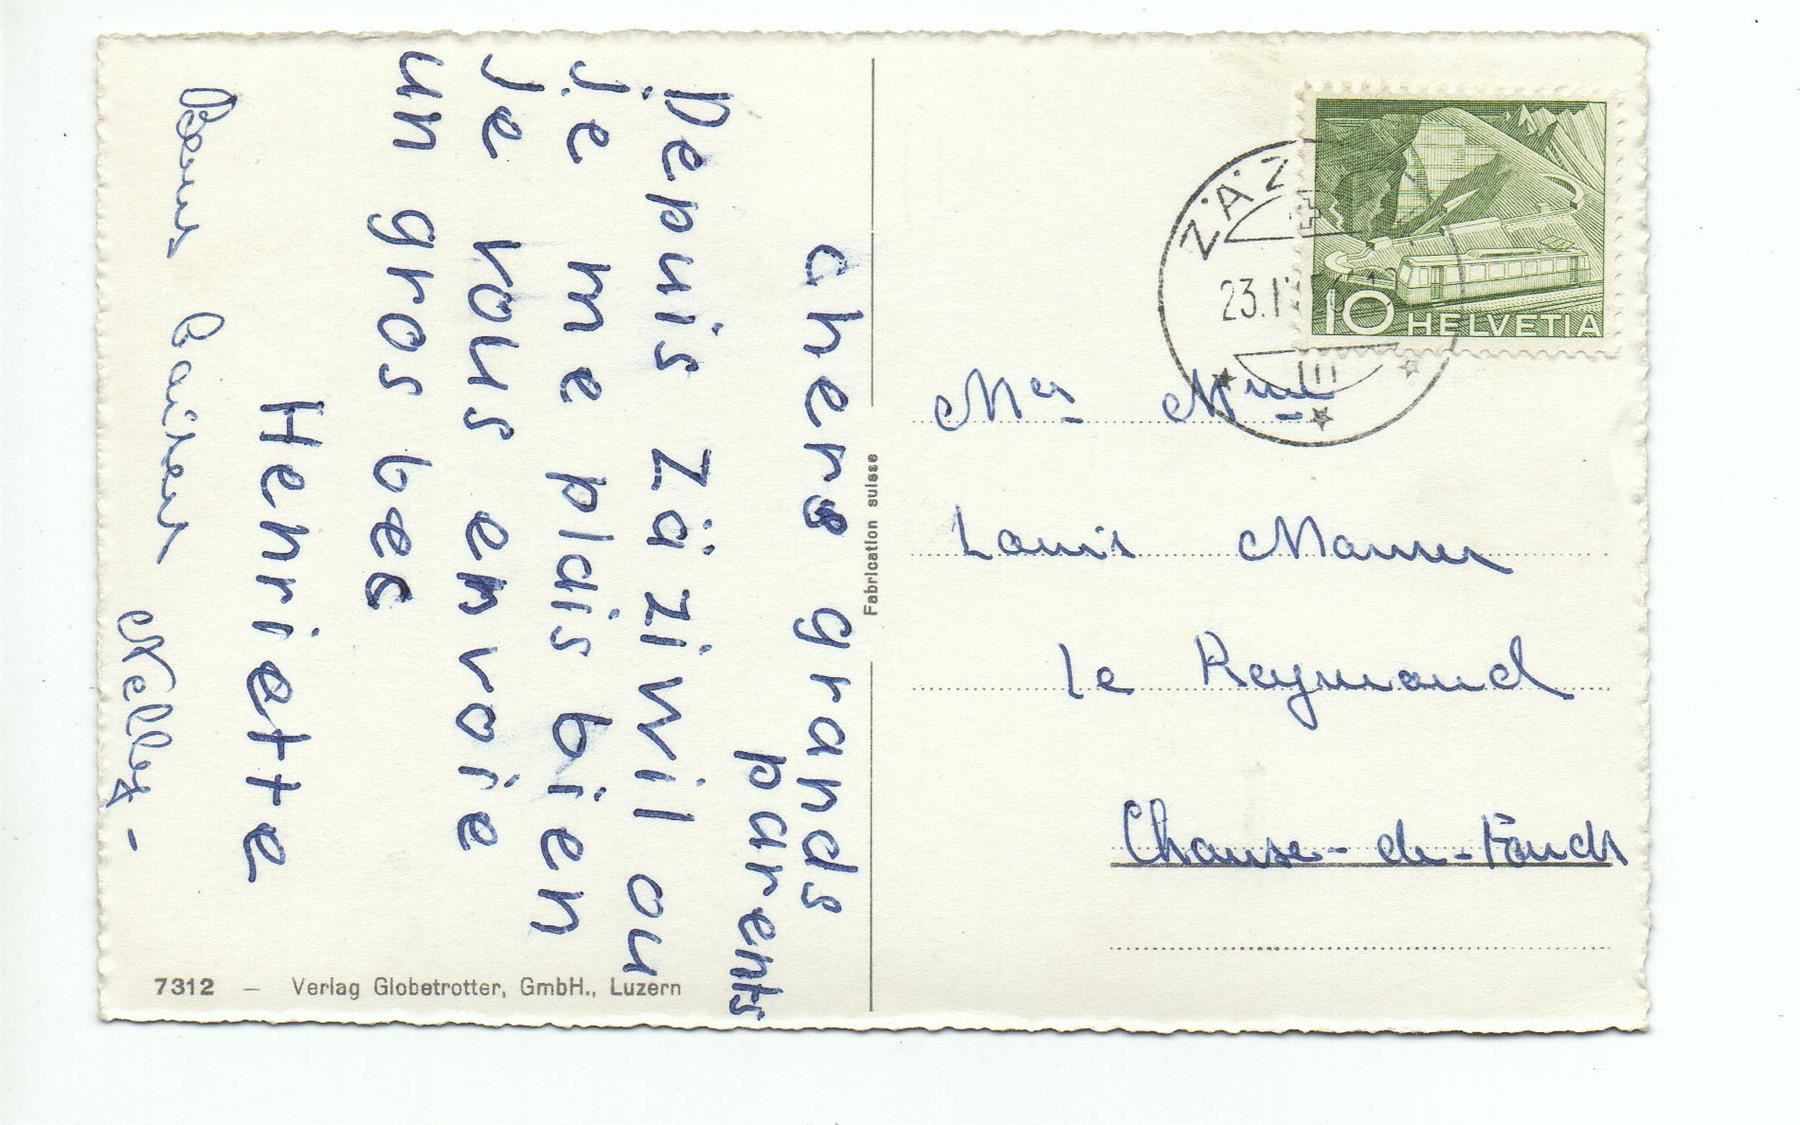 chers grands
parents
Depuis Zäziwil ou
je me plais bien
Je vous envoie
un gros bec
Henriette
Bons baisers
Nelly -
7312 — Verlag Globetrotter, GmbH., Luzern
Fabrication suisse
ZÄZ
23.I
10 HELVETIA
Mr Mme
Louis Maurer
Le Reymond
Chause-de-Fonds